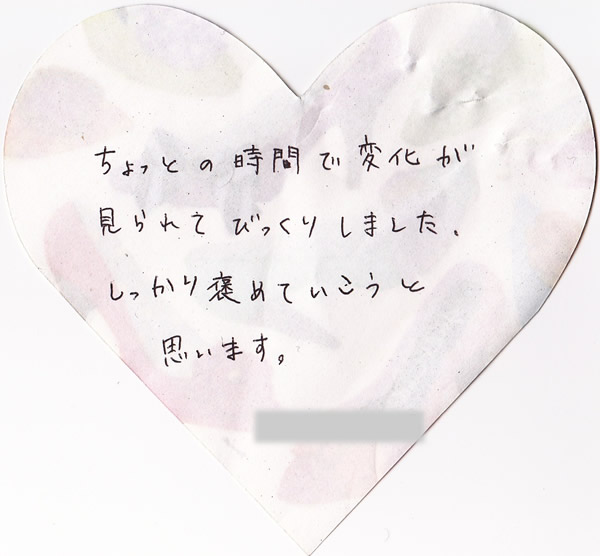 ちょっとの時間で変化が
見られてびっくりしました。
しっかり褒めていこうと
思います。